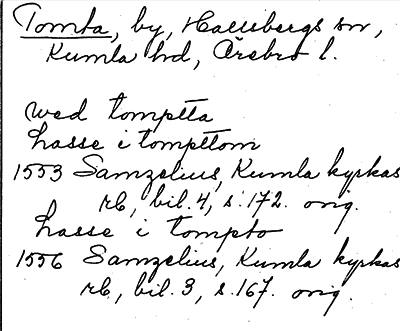 Tomta, by, Hallsbergs sn,
Kumla hd, Örebro l.
wed tompta
Lasse i tomptom
1553 Samzelius, Kumla kyrkas
rb, bil. 4, s. 172. orig.
Lasse i tompto
1556 Samzelius, Kumla kyrkas
rb, bil. 3, s. 167. orig.